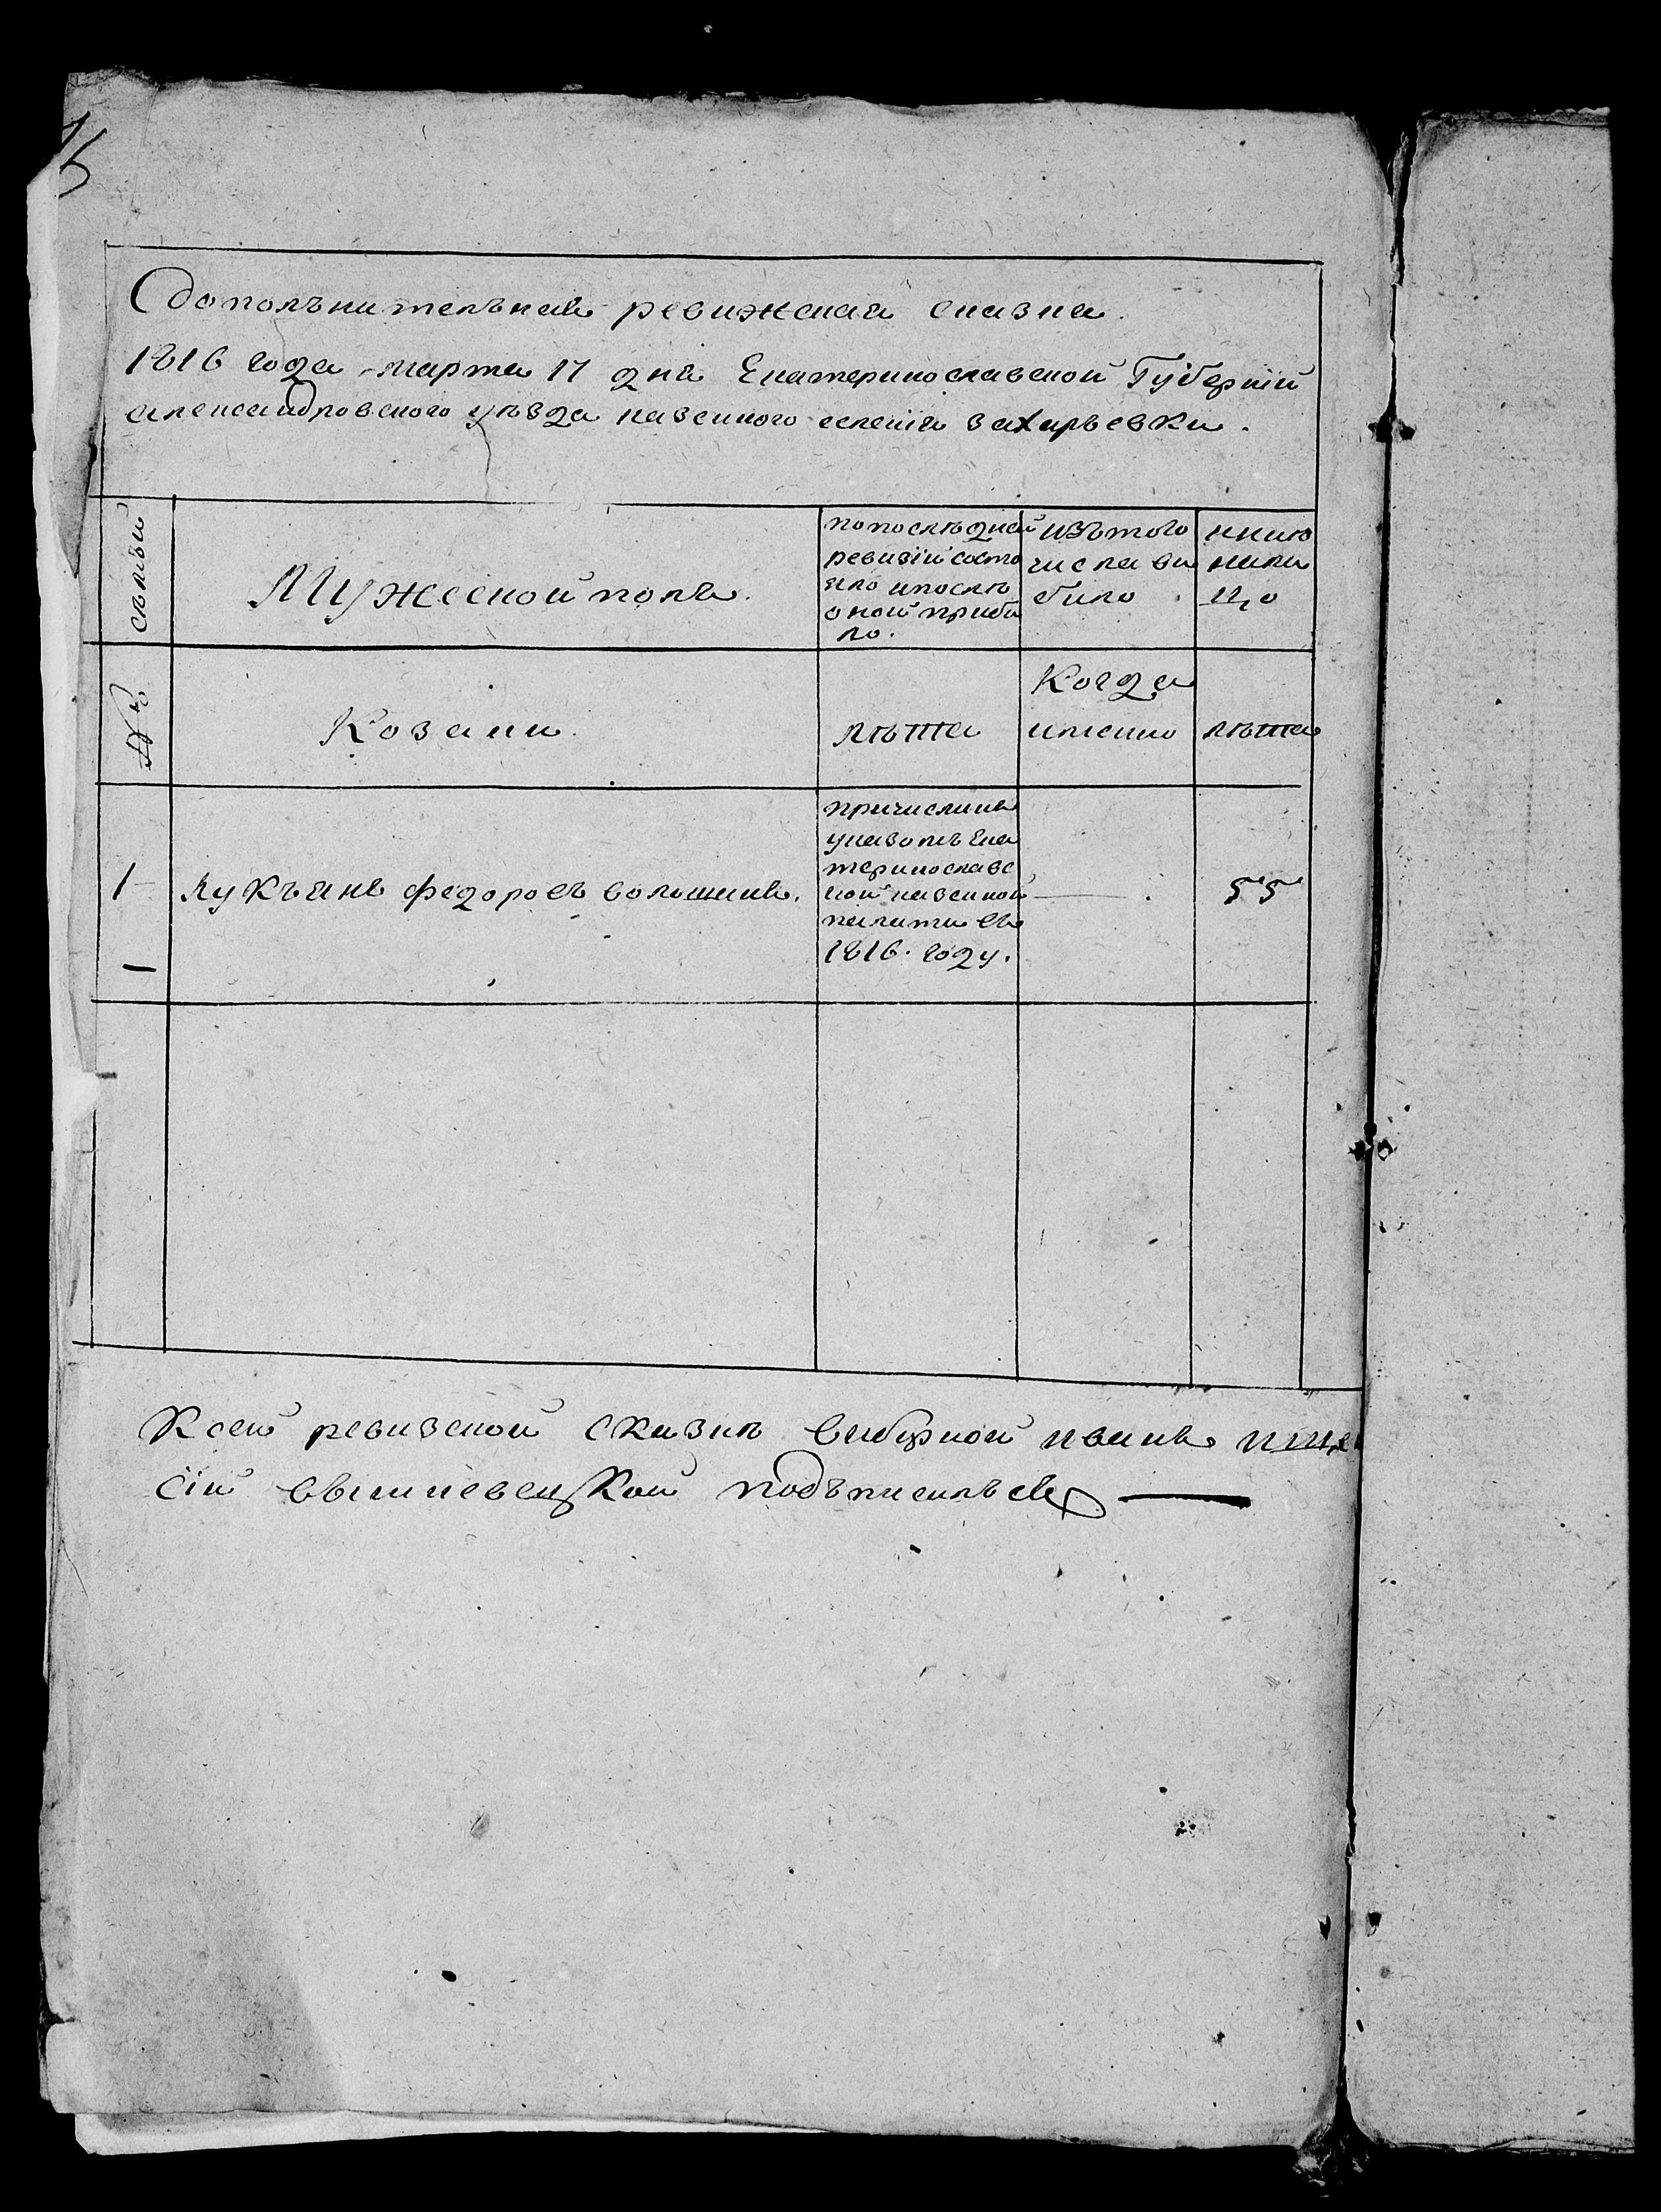 Дополънителъная ревижская сказка.
1816 года марта 17 дня Екатеринославской Губернїи
александровского уѣзда казенного селенїя захаръевки.
семьи
Мужеской полъ.
по последней
ревизїи состо
яло и после
оной прибы
ло.
изътого
числа вы
было
ныне
на ли
цо
№
Козаки.
лѣта
Когда
имянно
лѣта
1
Лукъянъ федоровъ волошинъ.
причисленъ
указомъ Ека
теринославс
кой казенной
палаты въ
1816. году.
55
1
К сей ревизской сказкѣ выборной иванъ
подъписался